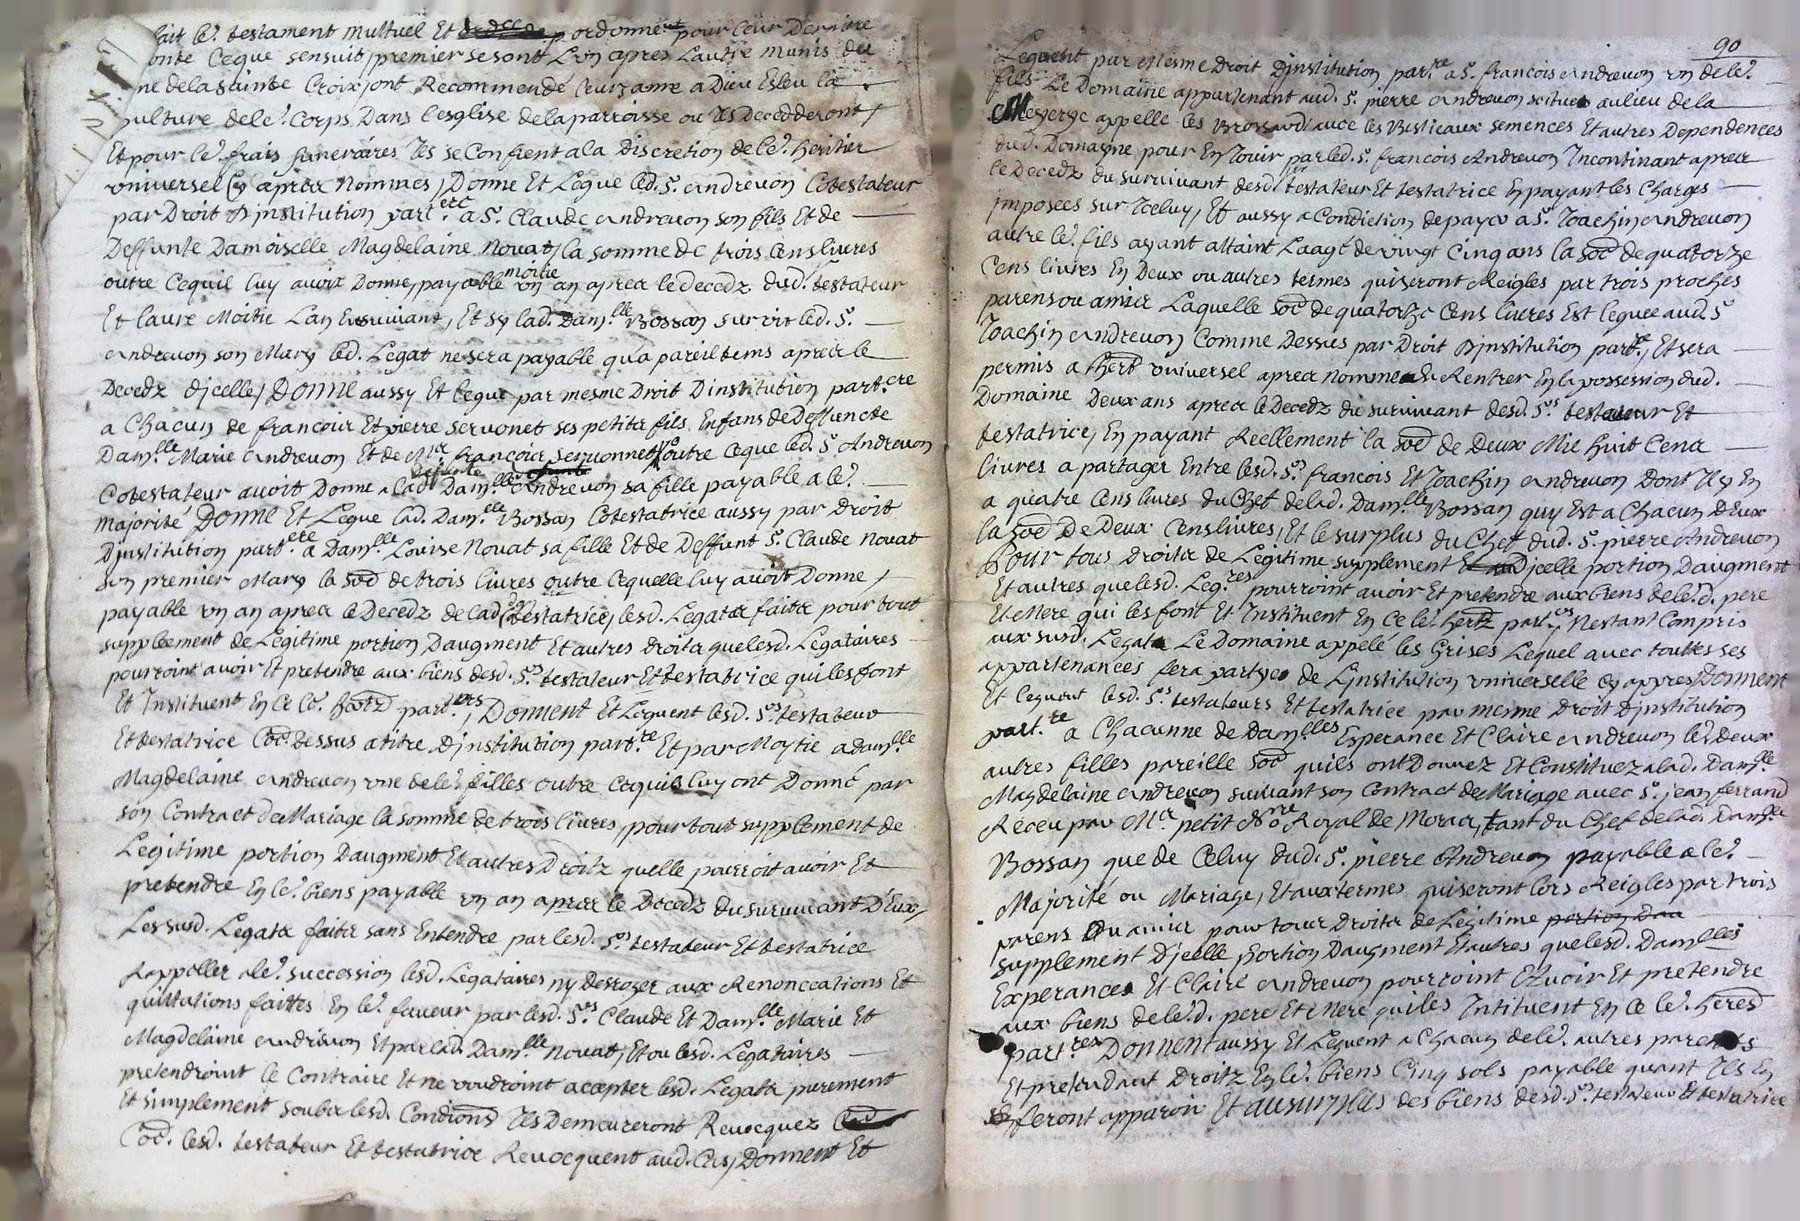 fait le^r. testament multuel Et ordonne^nt pour leur Derniere
onte Ceque sensuit, premier se sont L'vn apres L'autre munis du
ne dela sainte Croix, ont Recommendé leurs ame a Dieu Esleu la
pulture dele^r. Corps Dans l'esglise dela parroisse ou Ils Deceddesront,
Et pour le^r. frais funeraires Ils se Confient ala Discretion de le^r. heritier
vniversel Cy apres Nommes, Donne Et Legue led. S^r. Andreuon Cotestateur
par Droit D'jnstitution part^ere a S^r. Claude Andreuon son fils Et de
Deffunte Damoiselle Magdelaine Nouat, la somme de trois Cens livres
outre Cequil luy auoit Donne, payable moitie vn an apres le decedz dud^t. testateur
Et l'autre Moitie L'an Ensuiuant, Et sy lad. Dam^lle Bossan suruit led. S^r.
Andreuon son Mary led. Legat ne sera payable qu'a pareil tems apres le
Decedz d'jcelle, DONNE aussy Et legue par mesme Droit D'institution part^ere
a Chacun de francois Et pierre seruonet ses petits fils Enfans de Deffuncte
Dam^lle Marie Andreuon Et de M^re francois seruonnet, outre Ceque led. S^r. Andreuon
Cotestateur auoit Donne a lad. deffunte Dam^lle Andreuon sa fille payable a le^r.
majorité DONNE Et Legue lad. Dam^lle Bossan Cotestatrice aussy par Droit
D'jnstitution part^ere a Dam^lle Louise Nouat sa fille Et de Deffunt S^r. Claude Nouat
son premier Mary la soe de trois livres outre Cequelle luy auoit Donne,
payable vn an apres le Decedz de lad. testatrice, lesd. Legats faits pour tout
supplement de Legitime portion D'augment Et autres droits que lesd. Legataires
pourroint auoir Et pretendre aux biens desd. S^rs testateur Et testatrice qui les font
Et Instituent En Ce le^r. hertz part^ers, DONNENT Et Leguent lesd. S^rs testateur
Et testatrice Coe. Dessus a titre D'jnstitution part^re Et par Moytie a dam^lle
Magdelaine Andreuon vne de le^r. filles outre Cequils luy ont Donné par
son Contract de Mariage la somme de trois livres, pour tout supplement de
Legitime portion D'augment Et autres Droitz quelle pourroit auoir Et
pretendre En le^r. biens payable vn an apres le Decedz du suruiuant D'Eux,
Les susd. Legats faits sans Entendre par lesd. S^rs. testateur Et testatrice
Rappeller a le^r. succession lesd. Legataires ny desroger aux Renonceations Et
quittations faittes En le^r. faueur par lesd. S^rs Claude Et Dam^lle Marie Et
Magdelaine Andreuon Et par lad. Dam^lle Nouat, Et ou lesd. Legataires
pretendroint le Contraire Et ne voudroint accepter lesd. Legats purement
Et simplement soubs lesd. Condions Ils Demeureront Reuocquez
Coe. lesd. testateur Et testatrice Reuocquent aud. Cas, Donnent Et
90
Leguent par mesme Droit D'jnstitution par^re a S^r. francois Andreuon vn de le^r.
fils Le Domaine appartenant aud. S^r. pierre Andreuon scitue au lieu de la
appelle les Brossard auec les Bestieaux semences Et autres Dependences
dud. Domayne pour En Jouir par led. S^r. francois Andreuon Incontinant apres
le Decedz du suruiuant desd. testateur Et testatrice En payant les Charges
jmposees sur Jceluy, Et aussy a Condiction de payer a S^r. Joachin Andreuon
autre le^r. fils ayant attaint L'aage de vingt Cinq ans la soe de quatorze
Cens livres En Deux ou autres termes qui seront Reigles par trois proches
parens ou amis Laquelle soe de quatorze Cens liures Est leguee aud. S^r
Joachin Andreuon Comme Dessus par Droit D'jnstitution part^re, Et sera
permis a l'hert vniversel apres nomme de Rentrer En la possession dud.
Domaine Deux ans apres le Decedz du suruiuant desd. S^rs testateur Et
testatrice, En payant Reellement la soe de Deux Mil huit Cens
livres a partager Entre lesd. S^rs francois Et Joachin Andreuon Dont Il y En
a quatre Cens livres du Chef de lad. Dam^lle Bossan quy Est a Chacun D'Eux
la Soe De Deux Cens livres, Et le surplus du Chef dud. S^r. pierre Andreuon
POUR tous droits de Legitime supplement D'jcelle portion D'augment
Et autres que lesd. Leg^res pourroint auoir Et pretendre aux biens dele^r. d. pere
Et Mere qui les font Et Instituent En Ce le^r. hertz part^res, N'estant Compris
aux susd. Legats Le Domaine appelé les Grises Lequel auec touttes ses
appartenances fera partye de L'jnstitution vniverselle Cy appres DONNENT
Et leguent lesd. S^rs testateurs Et testatrice par mesme Droit D'jnstitution
part^re a Chacunne de Dam^lles Esperance Et Claire Andreuon le^r. deux
autres filles pareille soe quils ont Donnez Et Constituez a lad. Dam^lle
Magdelaine Andreuon suiuant son Contract de Mariage auec S^r. jean ferrand
Receu par M^re petit No^re Royal de Moras, tant du Chef de lad. Dam^lle
Bossan que de Celuy dud. S^r. pierre Andreuon payable a le^r.
Majorité ou Mariage, Et aux termes qui seront lors Reigles par trois
parens Ou amis pour tous Droits de Legitime portion Dau
supplement D'jcelle Portion D'augment Et autres que lesd. Dam^lles
Experance Et Claire Andreuon pourroint Auoir Et pretendre
aux biens dele^r. d. pere Et Mere qui les Intituent En Ce le^r. heres
part^res DONNENT aussy Et Leguent a Chacun de le^r. autres parents
Et pretendant Droitz En le^r. biens Cinq sols payable quant Ils En
feront apparoir Et au surplus des biens desd. S^rs. testateur Et testatrice